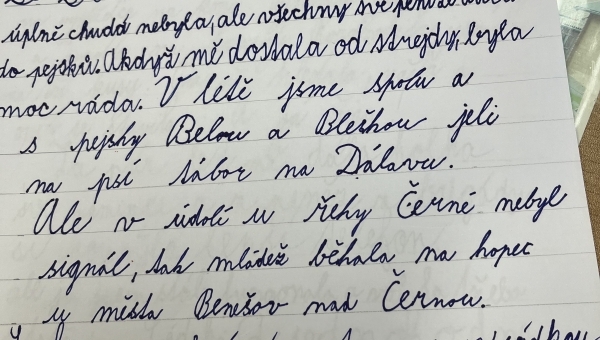 úplně chudá nebyla, ale všechny své peníze
do pejsků. A když mě dostala od strejdy, byla
moc ráda. V létě jsme spolu a
s pejsky Belou a Bleškou jeli
na psí tábor na Dálavu.
Ale v údolí u řeky Černé nebyl
signál, tak mládež běhala na kopec
u města Benešov nad Černou.